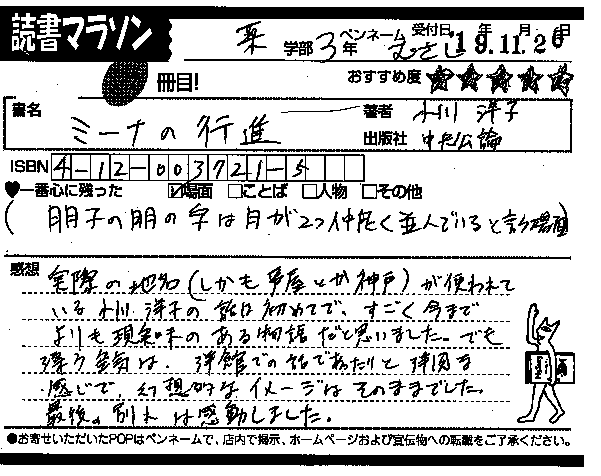 読書マラソン
薬 学部 3年 ペンネーム むさし 受付日 '19年.11月.26日
冊目! おすすめ度 ★★★★★
書名 ミーナの行進 著者 小川 洋子
出版社 中央公論
ISBN 4-12-003721-5
♥一番心に残った ☑場面 □ことば □人物 □その他
(朋子の朋の字は月が2つ仲良く並んでいると言う場面)
感想 実際の地名(しかも芦屋とか神戸)が使われて
いる小川洋子の話は初めてで、すごく今まで
よりも現実味のある物語だと思いました。でも
漂う空気は、洋館での話であったりと
感じで、幻想的なイメージはそのままでした。
最後の別れは感動しました。
●お寄せいただいたPOPはペンネームで、店内で掲示、ホームページおよび宣伝物への転載をご了承ください。